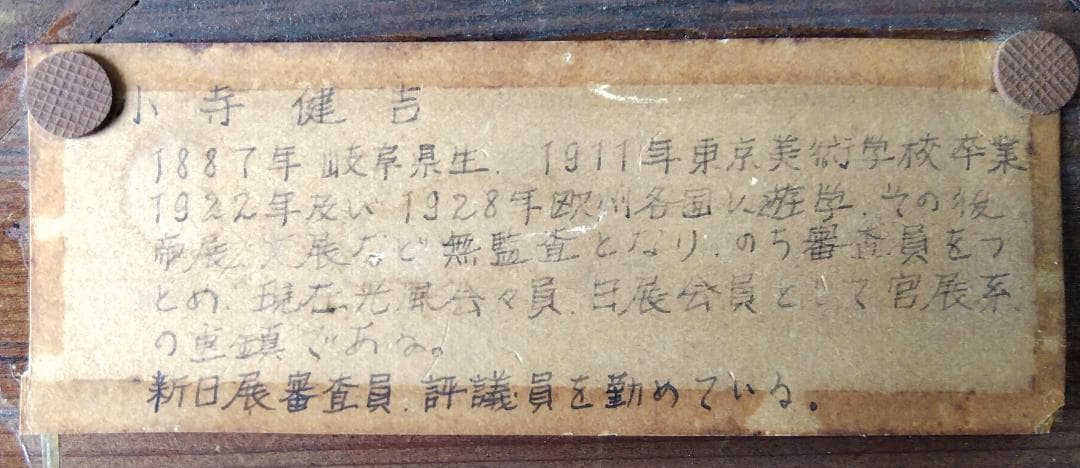 小寺健吉
1887年 岐阜県生. 1911年東京美術学校卒業
1922年及び 1928年欧州各国に遊学.その後
帝展、文展など無監査となり.のち審査員をつ
とめ.現在光風会々員.日展会員として官展系
の重鎮である。
新日展審査員.評議員を勤めている。